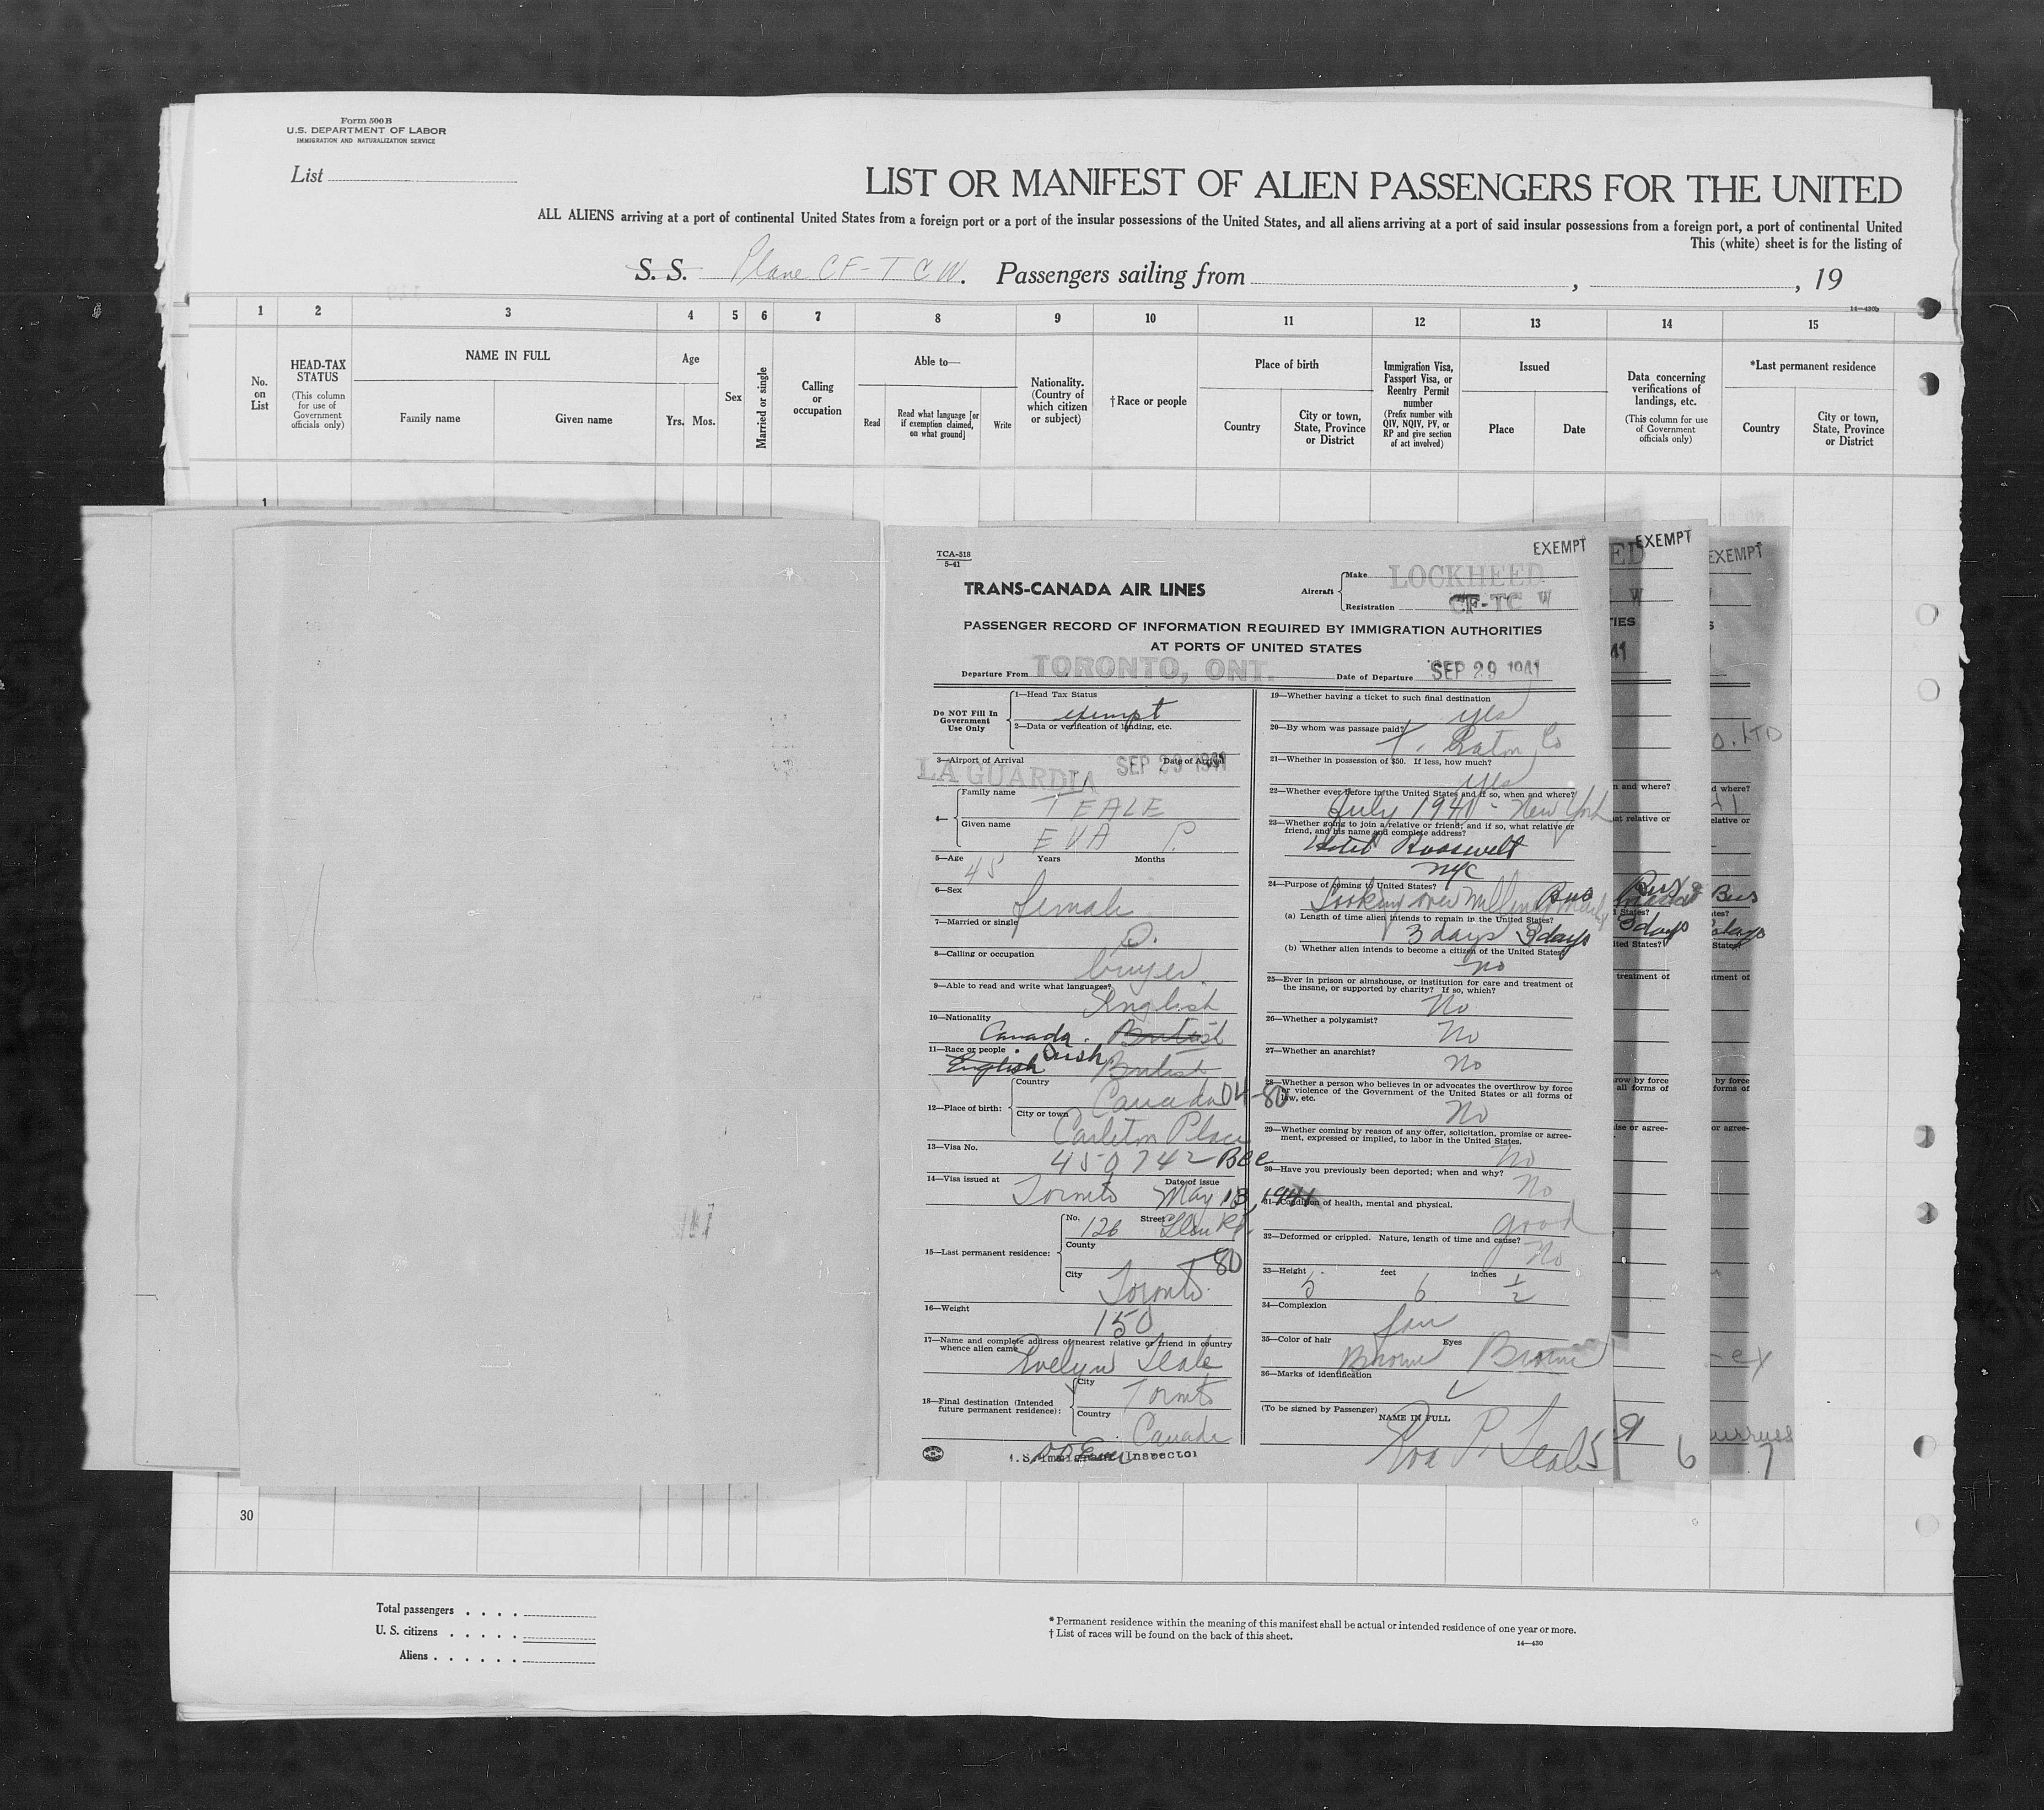 Form 500B
U.S. DEPARTMENT OF LABOR
IMMIGRATION AND NATURALIZATION SERVICE
List
LIST OR MANIFEST OF ALIEN PASSENGERS FOR THE UNITED
ALL ALIENS arriving at a port of continental United States from a foreign port or a port of the insular possessions of the United States, and all aliens arriving at a port of said insular possessions from a foreign port, a port of continental United
This (white) sheet is for the listing of
S. S. Plane CF-TCW. Passengers sailing from , , 19
14—430b
1 2 3 4 5 6 7 8 9 10 11 12 13 14 15
No. on List
HEAD-TAX STATUS
(This column for use of Government officials only)
NAME IN FULL
Family name Given name
Age
Yrs. Mos.
Sex
Married or single
Calling or occupation
Able to—
Read Read what language [or if exemption claimed, on what ground] Write
Nationality. (Country of which citizen or subject)
†Race or people
Place of birth
Country City or town, State, Province or District
Immigration Visa, Passport Visa, or Reentry Permit number
(Prefix number with QIV, NQIV, PV, or RP and give section of act involved)
Issued
Place Date
Data concerning verifications of landings, etc.
(This column for use of Government officials only)
*Last permanent residence
Country City or town, State, Province or District
1
TCA-518
5-41
EXEMPT
EXEMPT
EXEMPT
TRANS-CANADA AIR LINES
Aircraft Make LOCKHEED
Registration CF-TC W
PASSENGER RECORD OF INFORMATION REQUIRED BY IMMIGRATION AUTHORITIES
AT PORTS OF UNITED STATES
Departure From TORONTO, ONT. Date of Departure SEP 29 1941
Do NOT Fill In Government Use Only
1—Head Tax Status
exempt
2—Data or verification of landing, etc.
3—Airport of Arrival Date of Arrival
LA GUARDIA SEP 29 1941
4— Family name TEALE
Given name EVA P.
5—Age 45 Years Months
6—Sex female
7—Married or single S.
8—Calling or occupation buyer
9—Able to read and write what languages?
English
10—Nationality
Canada. British
11—Race or people
English Irish British
12—Place of birth: Country Canada 04-80
City or town Carleton Place
13—Visa No. 450742 BCC
14—Visa issued at Toronto Date of issue May 13, 1941
15—Last permanent residence: No. 126 Street Glen Rd.
County
80
City Toronto.
16—Weight 150
17—Name and complete address of nearest relative or friend in country
whence alien came
Evelyn Teale
18—Final destination (Intended
future permanent residence): City Toronto
Country Canada
U.S. Immigrant Inspector
19—Whether having a ticket to such final destination
yes
20—By whom was passage paid?
T. Eaton Co
21—Whether in possession of $50. If less, how much?
yes
22—Whether ever before in the United States and if so, when and where?
July 1941 - New York
23—Whether going to join a relative or friend; and if so, what relative or
friend, and his name and complete address?
Hotel Roosevelt
NYC
24—Purpose of coming to United States?
Looking over millinery Bus
(a) Length of time alien intends to remain in the United States?
3 days 3days
(b) Whether alien intends to become a citizen of the United States?
no
25—Ever in prison or almshouse, or institution for care and treatment of
the insane, or supported by charity? If so, which?
No
26—Whether a polygamist?
No
27—Whether an anarchist?
No
28—Whether a person who believes in or advocates the overthrow by force
or violence of the Government of the United States or all forms of
law, etc.
No
29—Whether coming by reason of any offer, solicitation, promise or agree-
ment, expressed or implied, to labor in the United States.
No
30—Have you previously been deported; when and why?
No
31—Condition of health, mental and physical.
good
32—Deformed or crippled. Nature, length of time and cause?
No
33—Height 5 feet 6 inches ½
34—Complexion
fair
35—Color of hair Brown Eyes Brown
36—Marks of identification
(To be signed by Passenger)
NAME IN FULL
Eva P. Teale 5
6
7
30
Total passengers
U. S. citizens
Aliens
* Permanent residence within the meaning of this manifest shall be actual or intended residence of one year or more.
† List of races will be found on the back of this sheet.
14—430